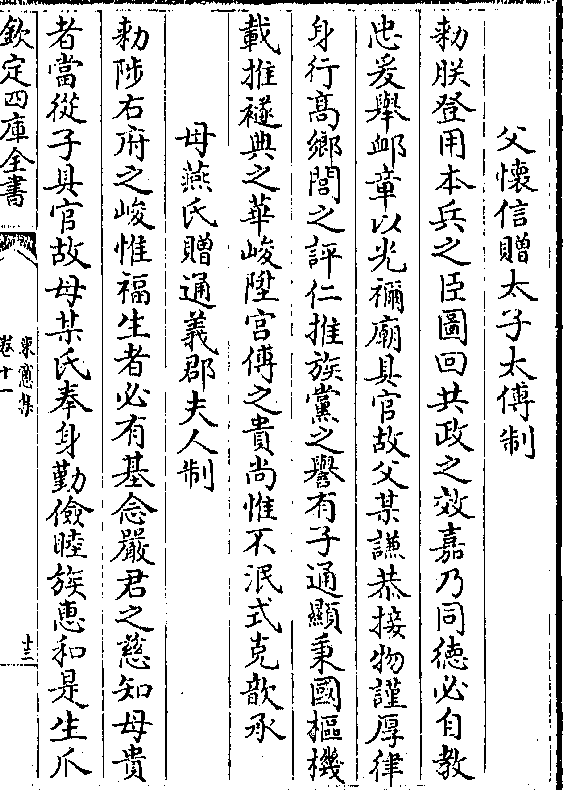 父懐信贈太子太傅制
勅朕登用本兵之臣圖回共政之效嘉乃同徳必自教
忠爰舉邮章以光禰廟具官故父某謙恭接物謹厚律
身行髙鄉閭之評仁推族黨之譽有子通顯秉國樞機
載推襚典之華峻陞宫傅之貴尚惟不泯式克歆承
母燕氏贈通義郡夫人制
勅陟右府之峻惟福生者必有基念嚴君之慈知母貴
者當從子具官故母某氏奉身勤儉睦族惠和是生爪
欽定四庫全書
東窻集
卷十一
十三